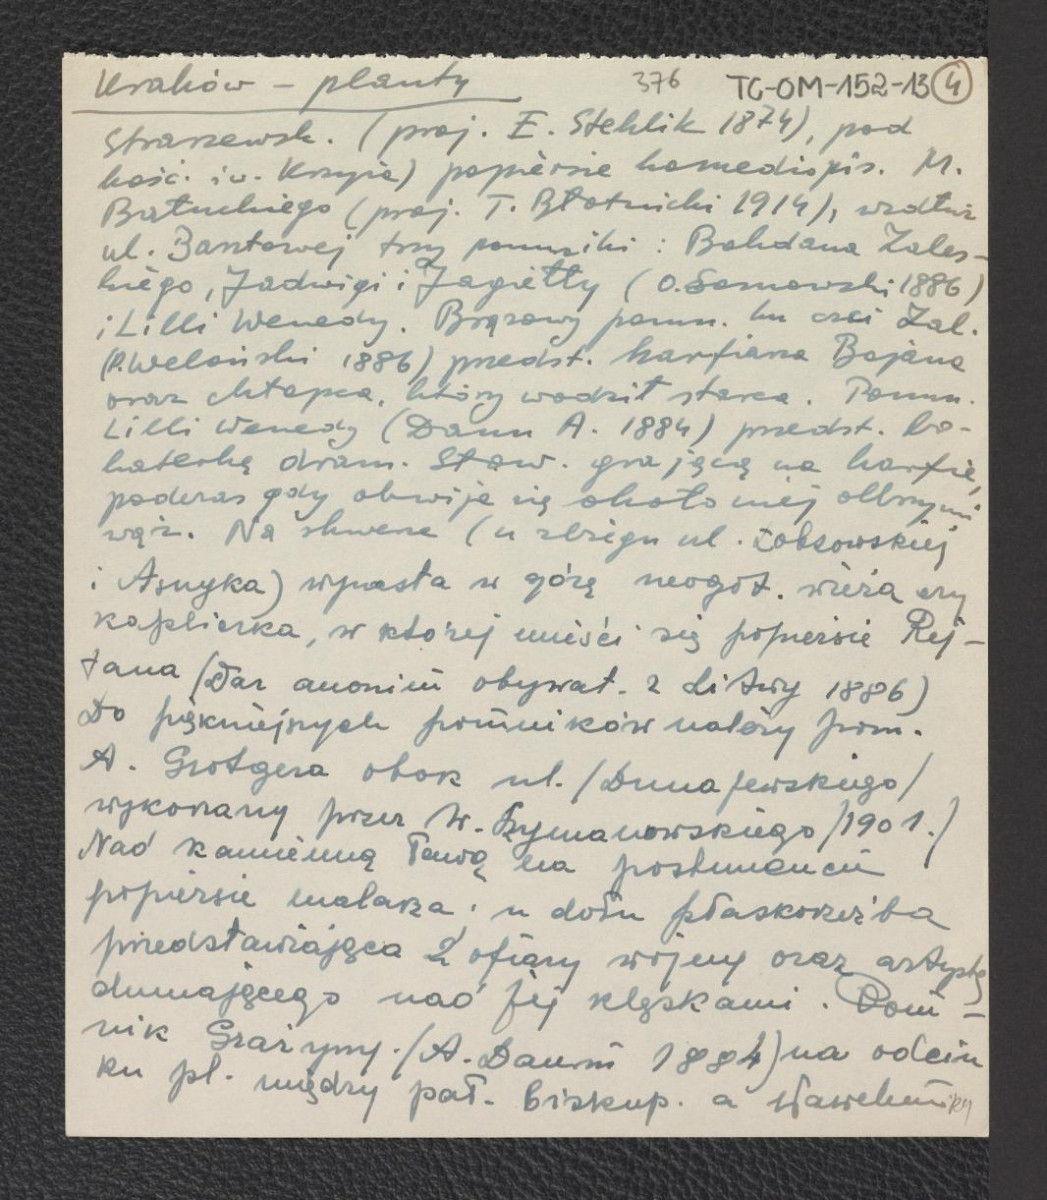 Kraków – planty 376 TC-OM-152-13 4
Straszewsk. (proj. E. Stehlik 1874), pod
kość. św. Krzyża) popiersie komediopis. M.
Bałuckiego (proj. T. Błotnicki 1914), wzdłuż
ul. Basztowej trzy pomniki : Bohdana Zales-
kiego, Jadwigi i Jagiełły (O. Sosnowski 1886)
i Lilli Wenedy. Brązowy pomn. ku czci Zal.
(P. Weloński 1886) przedst. harfiarza Bojana
oraz chłopca, który wodził starca. Pomn.
Lilli Wenedy (Daun A. 1884) przedst. bo-
haterkę dram. Słow. grającą na harfie,
podczas gdy obwija się około niej olbrzymi
wąż. Na skwerze (u zbiegu ul. Łobzowskiej
i Asnyka) wyrasta w górę neogot. wieża czy
kapliczka, w której mieści się popiersie Rej-
tana (Dar anonim obywat. z Litwy 1886)
Do piękniejszych pomników należy pom.
A. Grottgera obok ul. /Dunajewskiego/
wykonany przez W. Szymanowskiego /1901./
Nad kamienną ławą na postumencie
popiersie malarza, u dołu płaskorzeźba
przedstawiająca 2 ofiary wojny oraz artystę
dumającego nad jej klęskami. Pom-
nik Grażyny. (A. Daun 1884) na odcin
ku pl. między pał. biskup. a Wawelem